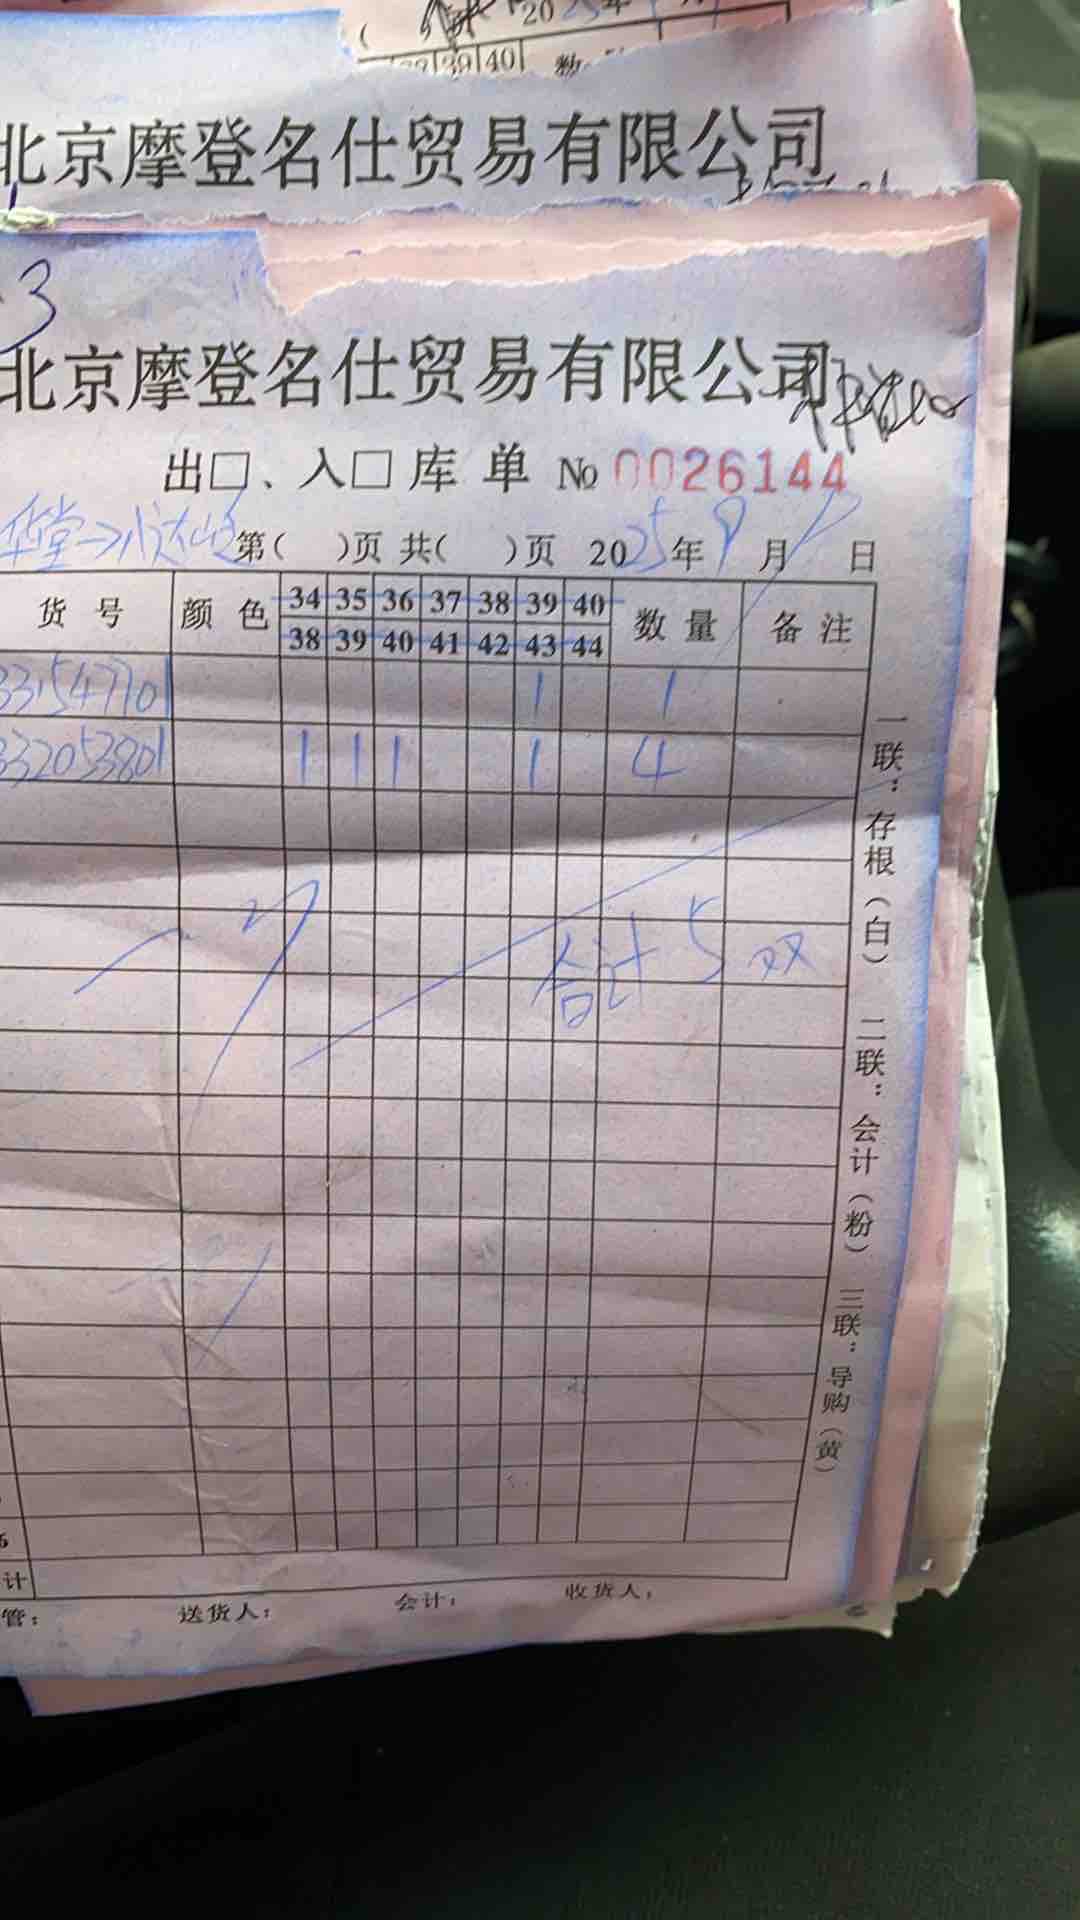 2025年
39 40 数
北京摩登名仕贸易有限公司
3
北京摩登名仕贸易有限公司
出□、入□库单 No 0026144
华堂→ 第( )页 共( )页 2025年9月9日
货号 颜色 34 35 36 37 38 39 40 数量 备注
38 39 40 41 42 43 44
331547701 1 1
332053801 1 1 1 1 4
合计5双
一联：存根（白） 二联：会计（粉） 三联：导购（黄）
计
管： 送货人： 会计： 收货人：